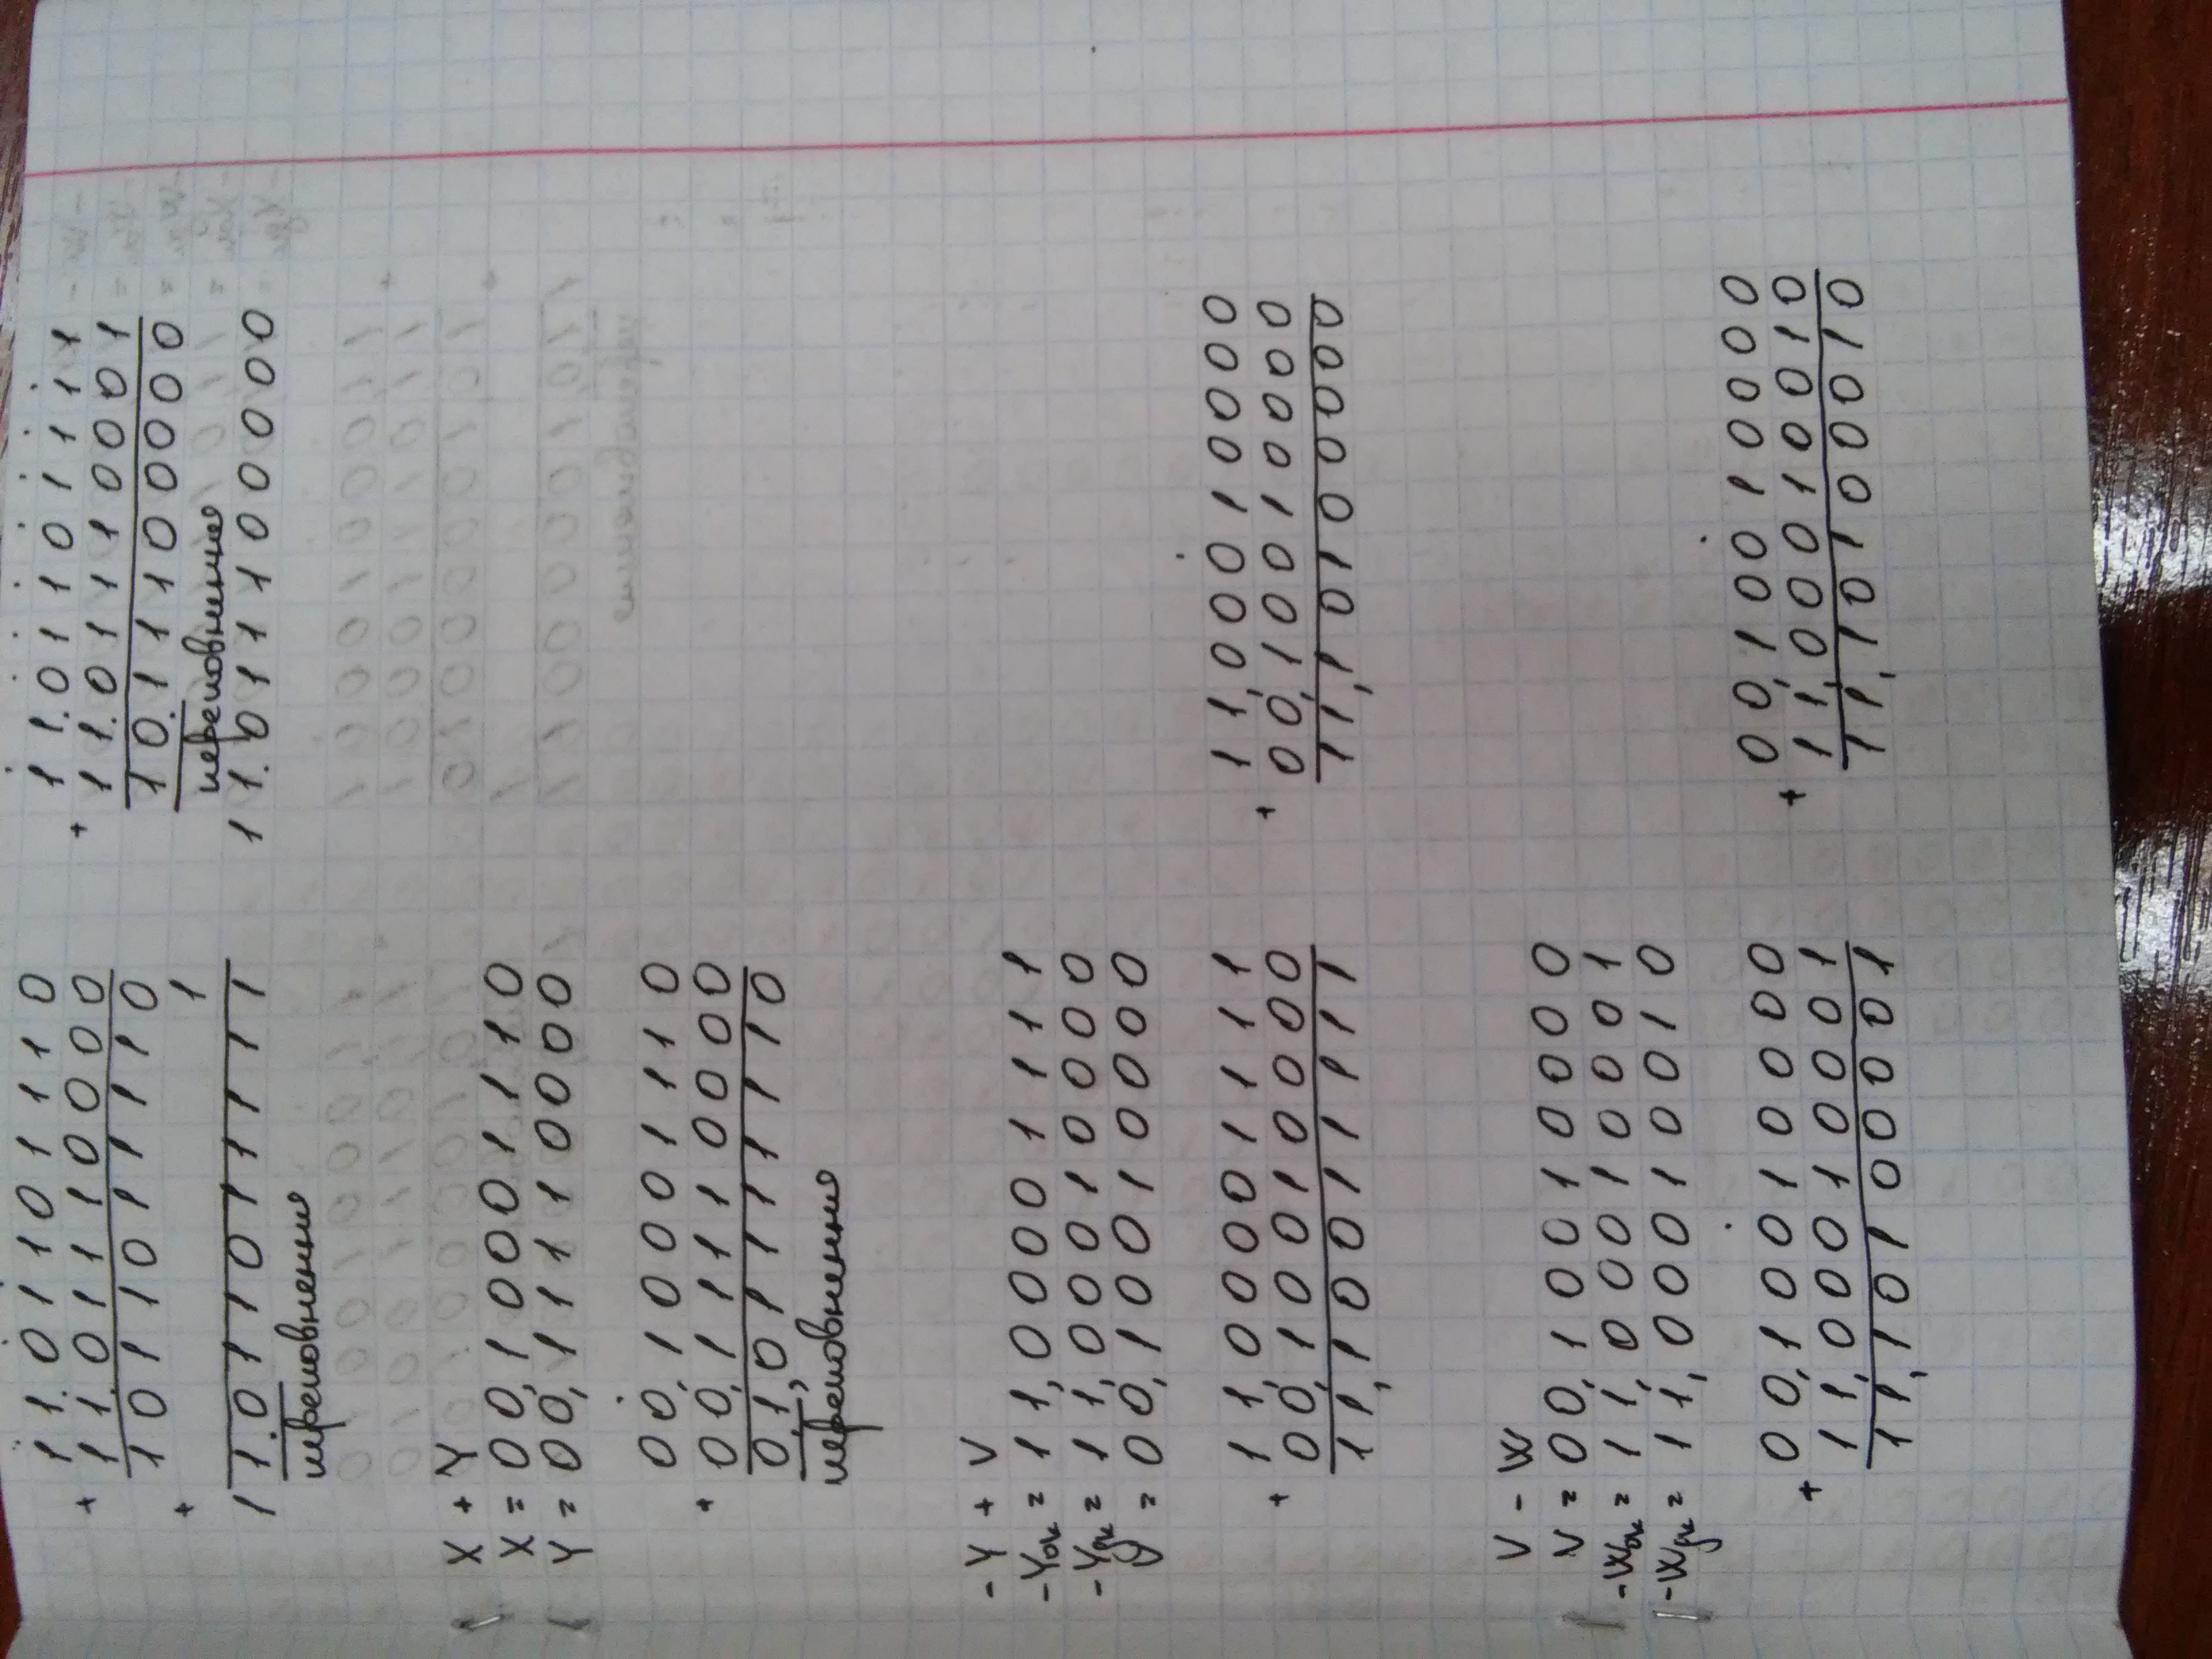 11.01101110
+ 11.01110000
1011011110
+ 1
11.011011111
переповнення
11.01101111
+ 11.01110001
10.11100000
переповнення
11.011100000
X + Y
X = 00,10001110
Y = 00,11110000
00,10001110
+ 00,11110000
01,01111110
переповнення
-Y + V
-Yок = 11,00001111
-Yдк = 11,00010000
V = 00,10010000
11,00001111
+ 00,10010000
11,10011111
11,00010000
+ 00,10010000
11,10100000
V - W
V = 00,10010000
-Wок = 11,00010001
-Wдк = 11,00010010
00,10010000
+ 11,00010001
11,10100001
00,10010000
+ 11,00010010
11,10100010